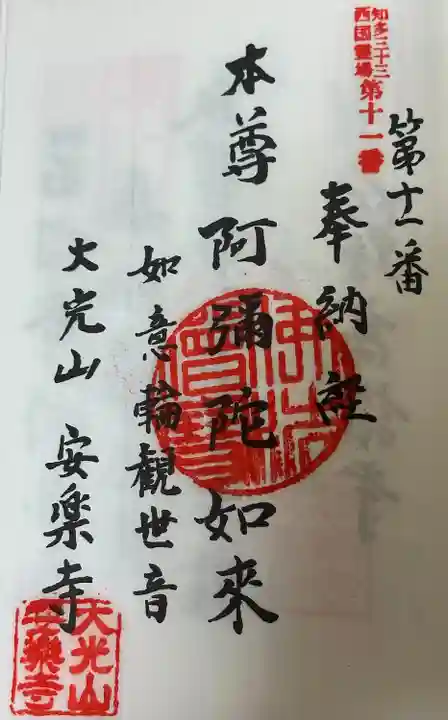 知多三十三
西国霊場
第十一番
第十一番
奉納経
本尊阿彌陀如來
如意輪觀世音
大光山 安楽寺
大光山
安樂寺